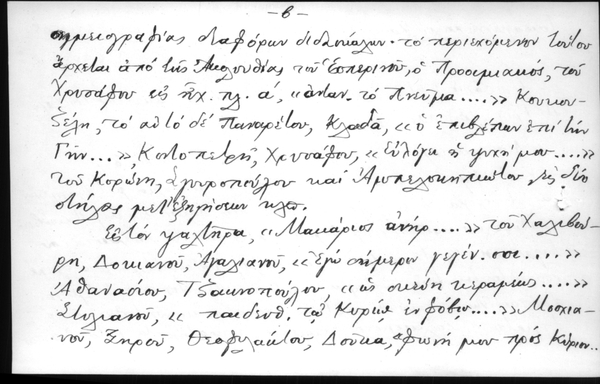 -β-
σημειογραφίας διαφόρων διδασκάλων· τὸ περιεχόμενον τούτου
ἄρχεται ἀπὸ τῆς Ἀκολουθίας τοῦ Ἑσπερινοῦ, ὁ Προοιμιακός, τοῦ
Χρυσάφου εἰς ἦχ. πλ. α', «ἀνταν. τὸ Πνεῦμα....» Κουκου-
ζέλη, τὸ αὐτὸ δὲ Παναρέτου, Κλαδᾶ, «ὁ ἐπιβλέπων ἐπὶ τὴν
Γῆν...», Κοντοπετρῆ, Χρυσάφου, «Εὐλόγει ἡ ψυχή μου....»
τοῦ Κορώνη, Ἀργυροπούλου καὶ Ἀμπελοκηπιώτου, εἰς δύο
στήλας μετ' ἐξηγήσεων κλπ.
Εἰς τὸν ψαλτῆρα, «Μακάριος ἀνήρ....» τοῦ Χαλιβού-
ρη, Δοκιανοῦ, Ἀγαλιανοῦ, «Ἐγὼ σήμερον γεγέν. σε....»
Ἀθανασίου, Τζακνοπούλου, «ὡς σκεύη κεραμέως....»
Στυλιανοῦ, « παιδευθ. τῷ Κυρίῳ ἐν φόβῳ....» Μοσχια-
νοῦ, Ξηροῦ, Θεοφυλάκτου, Δούκα, «φωνή μου πρὸς Κύριον..